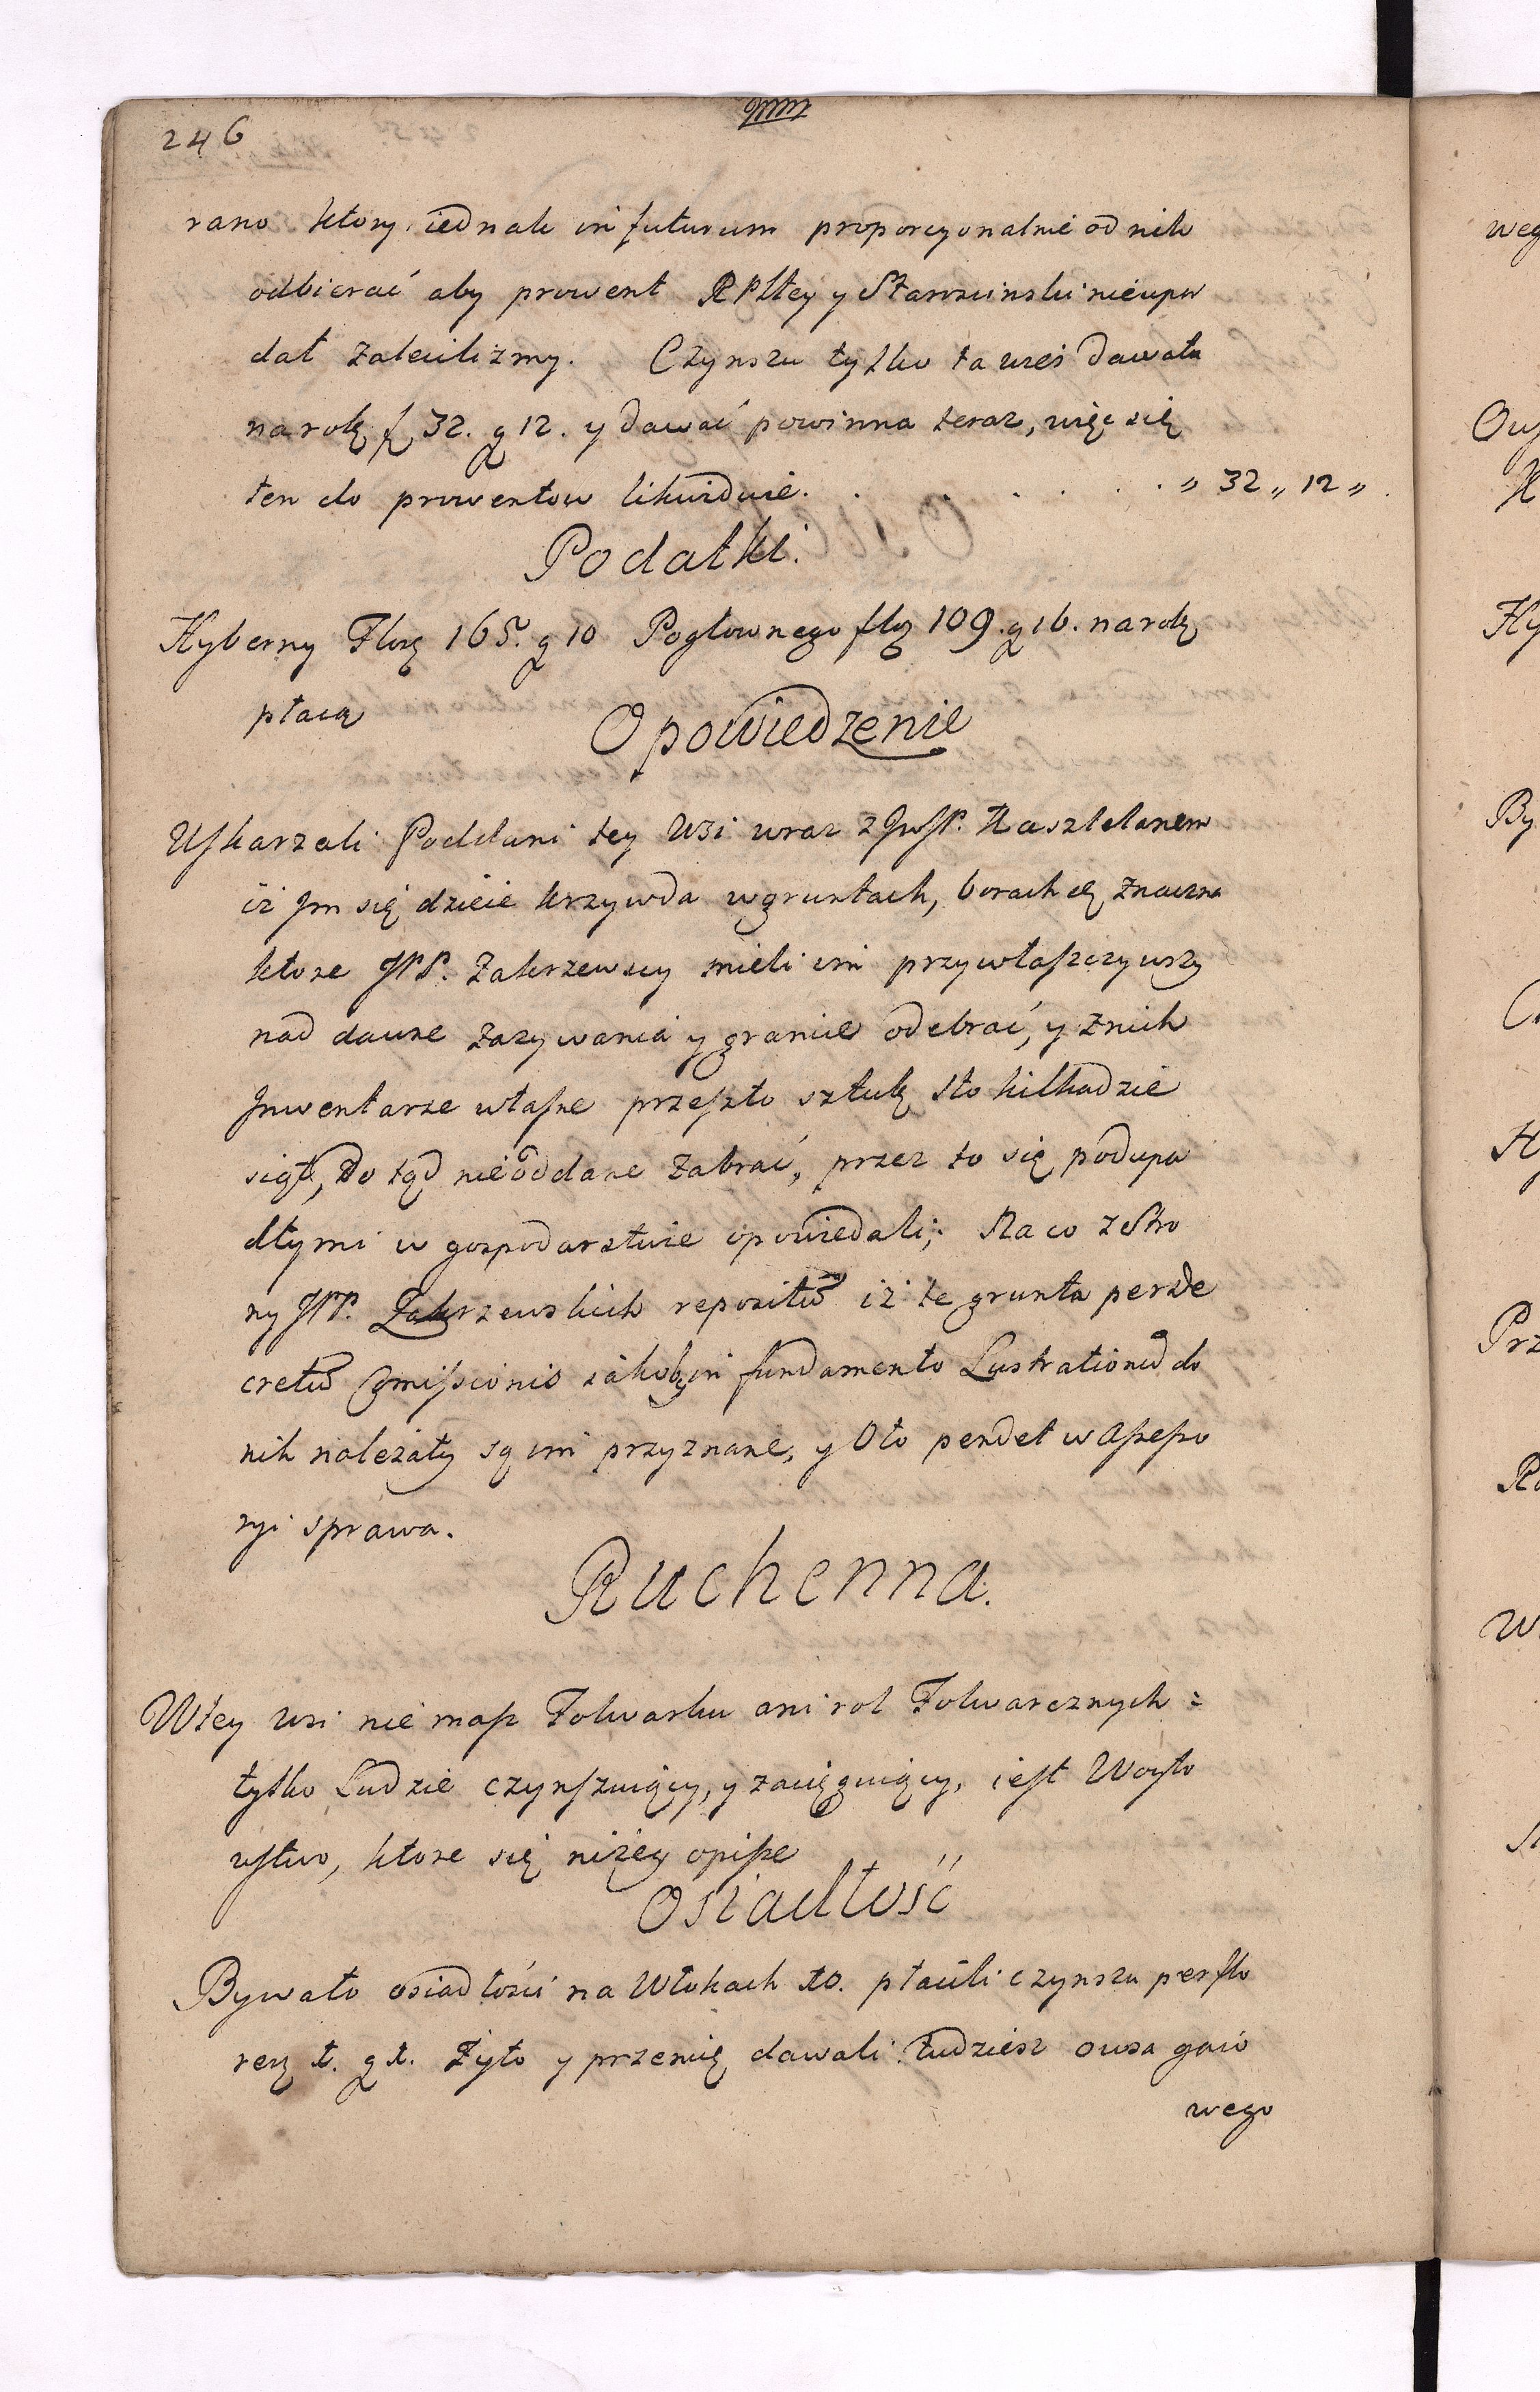 246
rano ktory iednak in futurum proporcyonalnie od nich
odbierać aby prowent RPltey y Starościnski nieupa
dał zaleciliźmy. Czynszu tylko ta wieś dawała
na rok f 32. g 12. y dawać powinna teraz, więc się
ten do prowentow likwiduie. . . . . . . . „ 32 „ 12 „.
Podatki.
Hyberny Florę 165. g 10 Pogłownego flg 109. g 16. na rok
płacą
Opowiedzenie
Uskarzali Poddani tey Wsi wraz z JWJP. Kasztelanem
iż Jm się dzieie krzywda w gruntach, borach etc znaczna
ktore JPP. Zakrzewscy mieli im przywłaszczywszy
nad dawne zazywania y granice odebrać, y z nich
Jnwentarze własne przeszło sztuk sto kilkadzie
siąt, do tąd nieoddane zabrać, przez to się podupa
dłymi w gospodarstwie opowiedali; Na co z Stro
ny JPP. Zakrzewskich repositū iż te grunta per de
cretū Comissionis iakoby in fundamento Lustrationū do
nich należały są im przyznane, y Oto pendet w Assesso
ryi sprawa.
Ruchenna.
W tey wsi nie masz Folwarku ani rol Folwarcznych:
tylko Ludzie czynszuiący, y zaciąguiący, iest Woyto
wstwo, ktore się niżey opisze
Osiadłość
Bywało osiadłości na Włokach 10. płacili czynszu per flo
reņ 1. g 1. Żyto y przenicę dawali tudziesz owsa gaio
wego